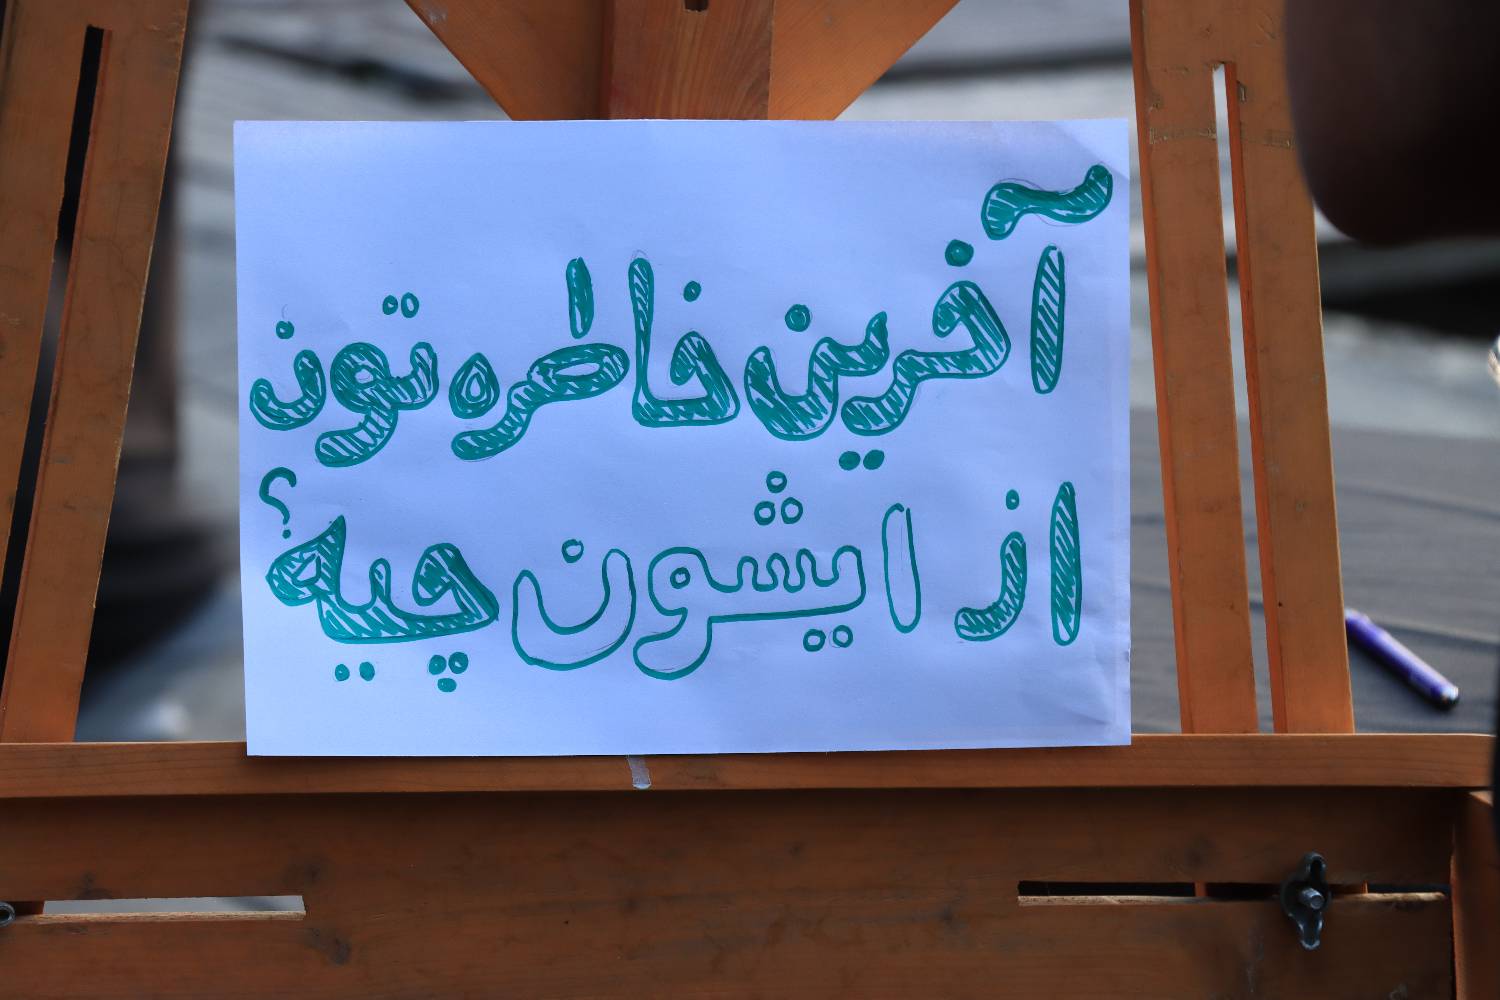 آفرین خاطره تون
از ایشون چیه؟